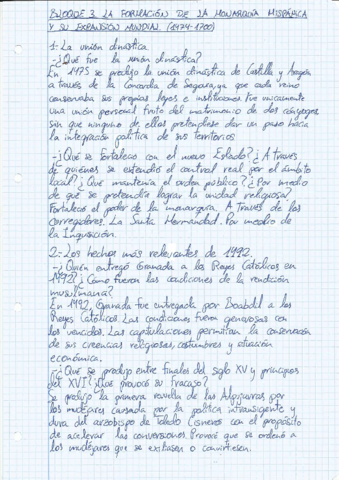 BLOQUE 3. LA FORMACIÓN DE LA MONARQUÍA HISPÁNICA
Y SU EXPANSIÓN MUNDIAL (1474-1700)
1- La unión dinástica
-¿Qué fue la unión dinástica?
En 1475 se produjo la unión dinástica de Castilla y Aragón
a través de la Concordia de Segovia, ya que cada reino
conservaba sus propias leyes e instituciones. Fue únicamente
una unión personal fruto del matrimonio de dos cónyuges
sin que ninguno de ellos pretendiese dar un paso hacia
la integración política de sus territorios
-¿Qué se fortaleció con el nuevo Estado? ¿A través
de quiénes se extendió el control real por el ámbito
local? ¿Qué mantenía el orden público? ¿Por medio
de qué se pretendía lograr la unidad religiosa?
Fortalece el poder de la monarquía. A través de los
corregidores. La Santa Hermandad. Por medio de
la Inquisición.
2- Los hechos más relevantes de 1992.
-¿Quién entregó Granada a los Reyes Católicos en
1492? ¿Cómo fueron las condiciones de la rendición
musulmana?
En 1492, Granada fue entregada por Boabdil a los
Reyes Católicos. Las condiciones fueron generosas con
los vencidos. Las capitulaciones permitían la conservación
de sus creencias religiosas, costumbres y situación
económica.
-¿Qué se produjo entre finales del siglo XV y principios
del XVI? ¿Qué provocó su fracaso?
Se produjo la primera revuelta de las Alpujarras por
los mudéjares causada por la política intransigente y
dura del arzobispo de Toledo Cisneros con el propósito
de acelerar las conversiones. Provocó que se ordenó a
los mudéjares que se exiliasen o convirtiesen.